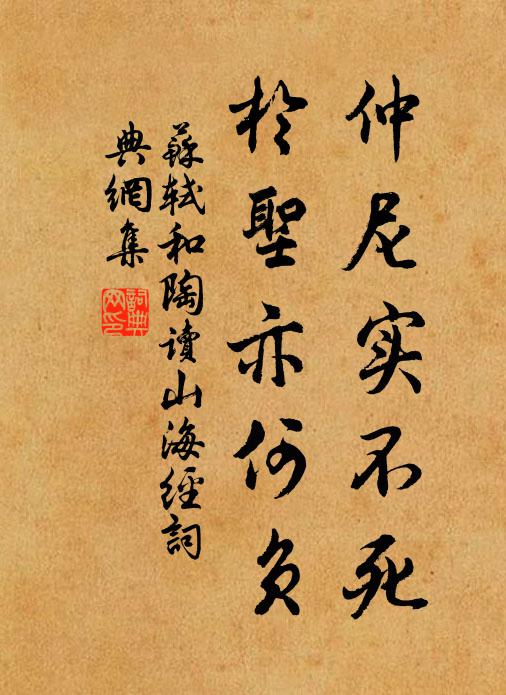 仲尼实不死
於聖亦何负
蘇轼和陶讀山海經詞
典網集
詞典
网印